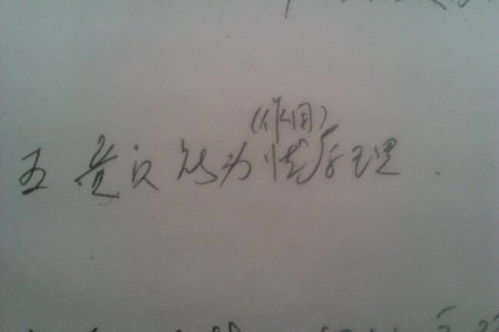 (作用)
五 意识能动性原理.